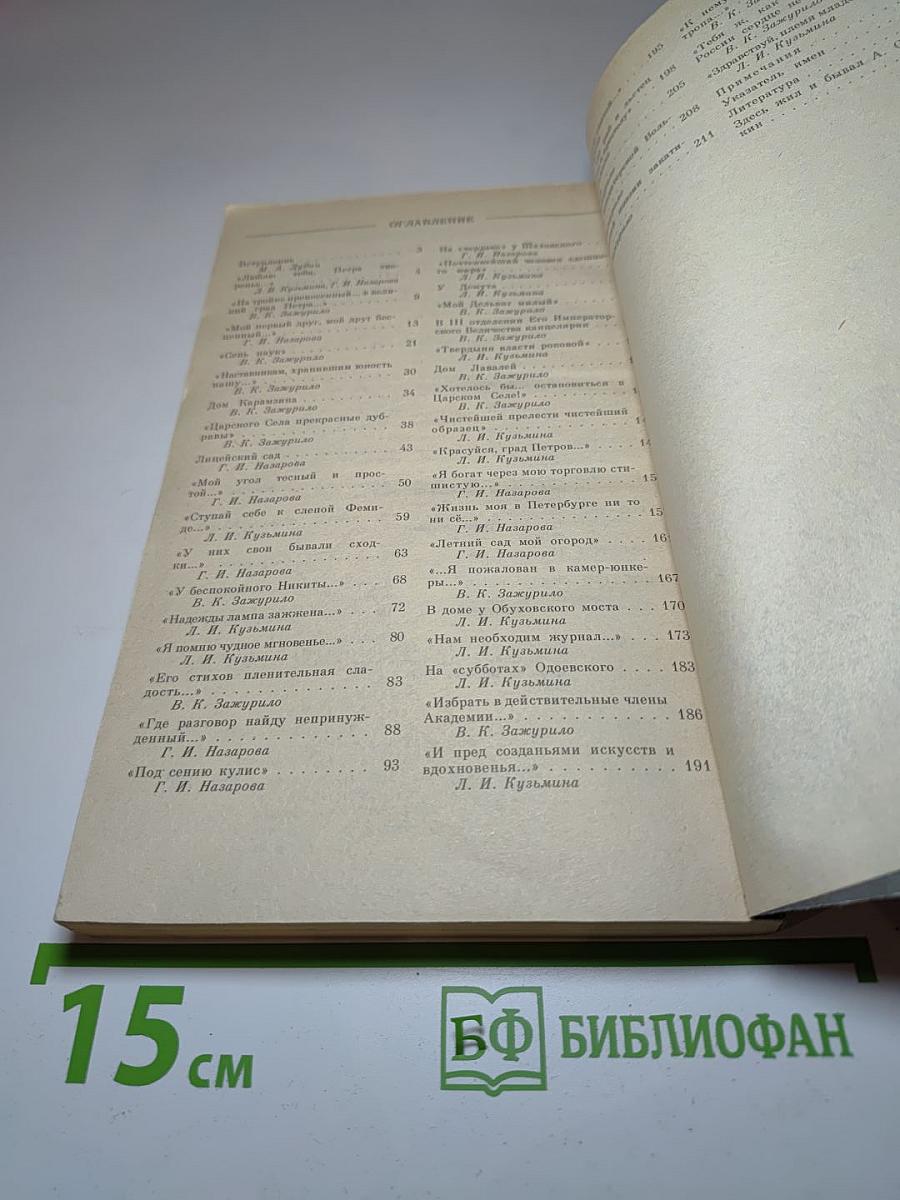 ОГЛАВЛЕНИЕ
Вступление 3
М. А. Дудин
«Люблю тебя, Петра тво-
ренье...» 4
Л. И. Кузьмина, Г. И. Назарова
«На тройке принесенный... в вели-
ний град Петра...» 9
В. К. Зажурило
«Мой первый друг, мой друг бес-
ценный...» 13
Г. И. Назарова
«Сень наук» 21
В. К. Зажурило
«Наставникам, хранившим юность
нашу...» 30
В. К. Зажурило
Дом Карамзина 34
В. К. Зажурило
«Царского Села прекрасные дуб-
равы» 38
В. К. Зажурило
Лицейский сад 43
Г. И. Назарова
«Мой угол тесный и прос-
той...» 50
Г. И. Назарова
«Ступай себе к слепой Феми-
де...» 59
Л. И. Кузьмина
«У них свои бывали сход-
ки...» 63
Г. И. Назарова
«У беспокойного Никиты...» 68
В. К. Зажурило
«Надежды лампа зажжена...» 72
Л. И. Кузьмина
«Я помню чудное мгновенье...» 80
Л. И. Кузьмина
«Его стихов пленительная сла-
дость...» 83
В. К. Зажурило
«Где разговор найду непринуж-
денный...» 88
Г. И. Назарова
«Под сению кулис» 93
Г. И. Назарова
На «чердаке» у Шаховского
Г. И. Назарова
«Почтеннейший человек здешне-
го мира»
Л. И. Кузьмина
У Демута
Л. И. Кузьмина
«Мой Дельвиг милый»
В. К. Зажурило
В III отделении Его Император-
ского Величества канцелярии
В. К. Зажурило
«Твердыня власти роковой»
Л. И. Кузьмина
Дом Лавалей
В. К. Зажурило
«Хотелось бы... остановиться в
Царском Селе!»
В. К. Зажурило
«Чистейшей прелести чистейший
образец» 1
Л. И. Кузьмина
«Красуйся, град Петров...» 14
Л. И. Кузьмина
«Я богат через мою торговлю сти-
шистую...» 15
Г. И. Назарова
«Жизнь моя в Петербурге ни то
ни сё...» 15
Г. И. Назарова
«Летний сад мой огород» 16
Г. И. Назарова
«...Я пожалован в камер-юнке-
ры...» 167
В. К. Зажурило
В доме у Обуховского моста 170
Л. И. Кузьмина
«Нам необходим журнал...» 173
Л. И. Кузьмина
На «субботах» Одоевского 183
Л. И. Кузьмина
«Избрать в действительные члены
Академии...» 186
В. К. Зажурило
«И пред созданьями искусств и
вдохновенья...» 191
Л. И. Кузьмина
195
198
205
208
211
«К нему
тропа...»
В. К. Зажурило
«Тебя ж, как
России сердце не
В. К. Зажурило
«Здравствуй, племя младое
Л. И. Кузьмина
Примечания
Указатель имен
Литература
Здесь жил и бывал А. С
кин
15 см
БФ БИБЛИОФАН